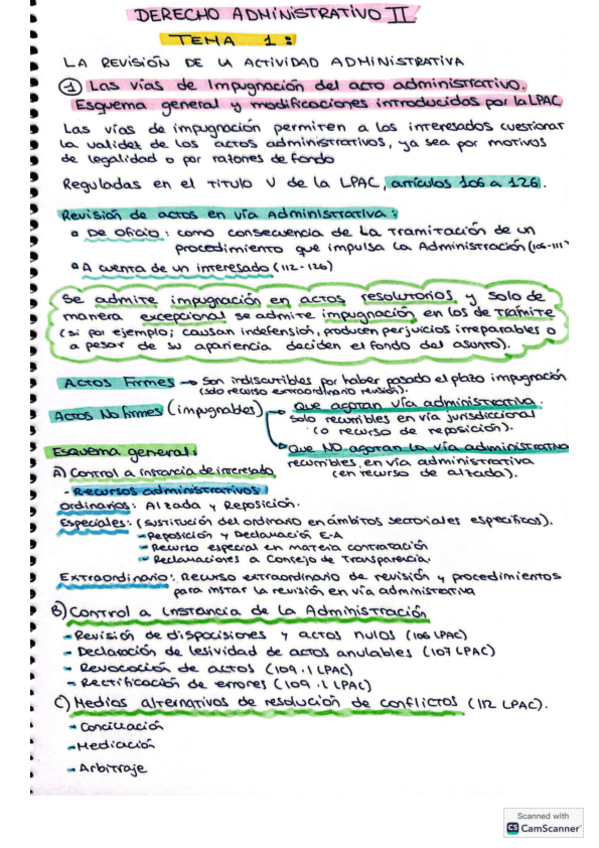 DERECHO ADMINISTRATIVO II
TEMA 1:
LA REVISIÓN DE LA ACTIVIDAD ADMINISTRATIVA
① Las vías de Impugnación del acto administrativo.
Esquema general y modificaciones introducidas por la LPAC
Las vías de impugnación permiten a los interesados cuestionar
la validez de los actos administrativos, ya sea por motivos
de legalidad o por razones de fondo
Reguladas en el Título V de la LPAC, artículos 106 a 126.
Revisión de actos en vía Administrativa:
De oficio: como consecuencia de la tramitación de un
procedimiento que impulsa la Administración (106-111
A cuenta de un interesado (112-126)
Se admite impugnación en actos resolutorios, y solo de
manera excepcional se admite impugnación en los de trámite
(si por ejemplo; causan indefensión, producen perjuicios irreparables o
a pesar de su apariencia deciden el fondo del asunto).
Actos Firmes → Son indiscutibles por haber pasado el plazo impugnación
(solo recurso extraordinario revisión).
Actos No firmes (impugnables) → Que agotan vía administrativa.
Solo recurribles en vía jurisdiccional
(o recurso de reposición).
→ Que NO agotan la vía administrativa
recurribles, en vía administrativa
(en recurso de alzada).
Esquema general:
A) Control a instancia de interesado
- Recursos administrativos
Ordinarios: Alzada y Reposición.
Especiales: (sustitución del ordinario en ámbitos sectoriales específicos).
- Reposición y Declaración E-A
- Recurso especial en materia contratación
- Reclamaciones a Consejo de Transparencia.
Extraordinario: Recurso extraordinario de revisión y procedimientos
para instar la revisión en vía administrativa
B) Control a instancia de la Administración
- Revisión de dispociciones y actos nulos (106 LPAC)
- Declaración de lesividad de actos anulables (107 LPAC)
- Revocación de actos (109.1 LPAC)
- Rectificación de errores (109.2 LPAC)
C) Medios alternativos de resolución de conflictos (112 LPAC).
- Conciliación
- Mediación
- Arbitraje
Scanned with
CS CamScanner